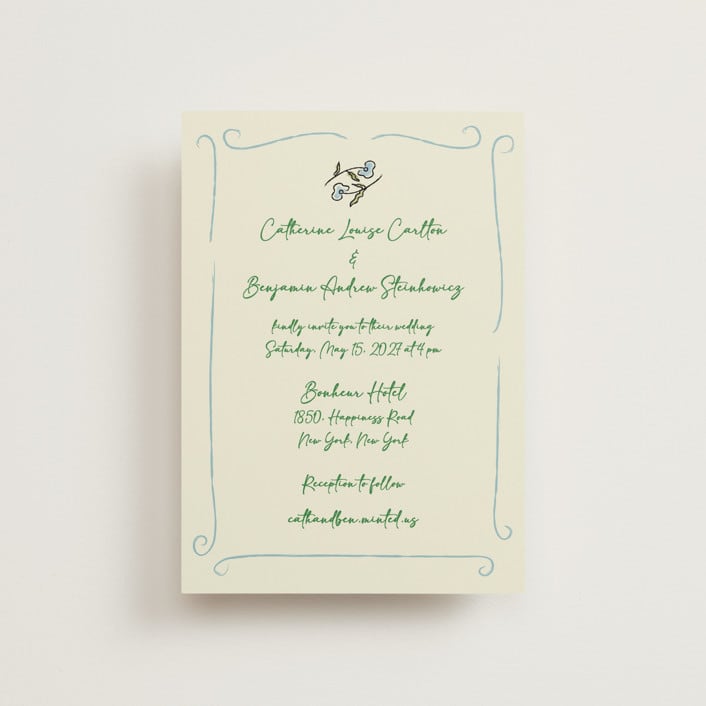 Catherine Louise Carlton
&
Benjamin Andrew Steinkowicz
kindly invite you to their wedding
Saturday, May 15, 2027 at 4 pm
Bonheur Hotel
1850. Happiness Road
New York, New York
Reception to follow
cathandben.minted.us